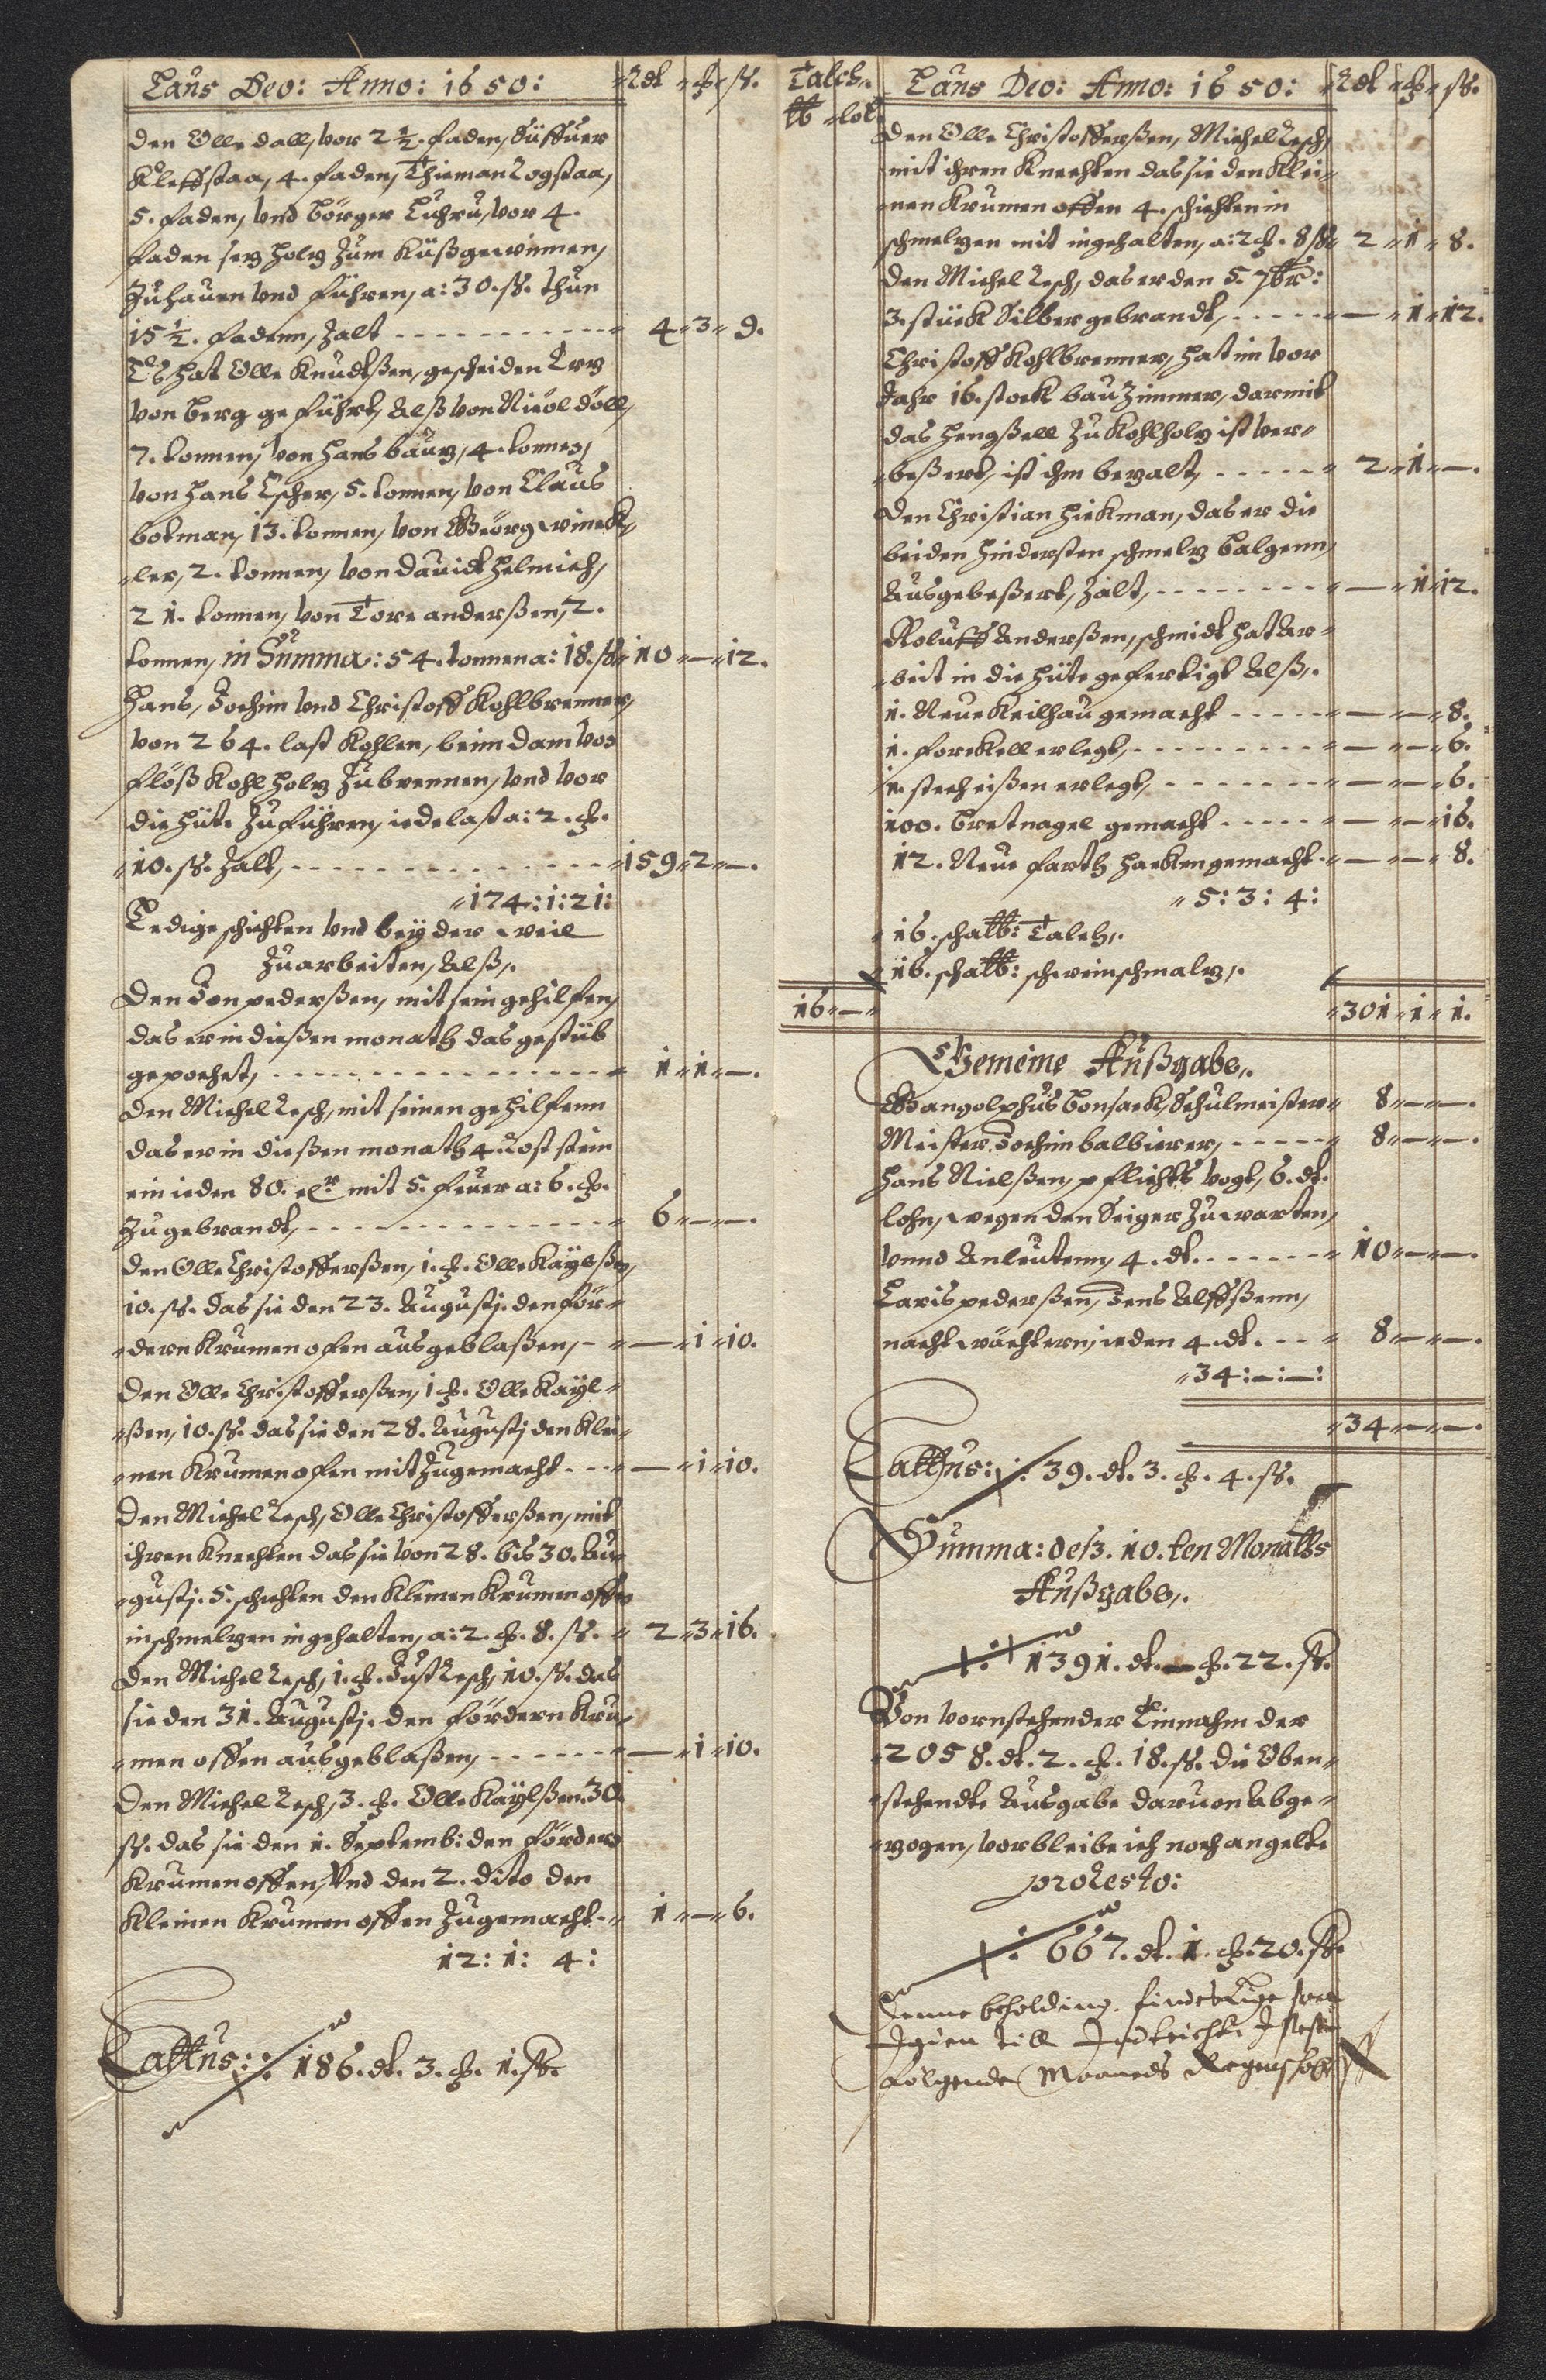 Laus Deo: Anno: 1650: Rdt ȹ ß.
den Olle dall, vor 2 1/2. faden, Süffuer
Kleffstaa, 4. faden, Thieman Logstaa,
5. faden, vnd Börger Luhru, vor 4.
faden setz holtz Zum Küßgewinnen,
Zuhauen vnd führen, a: 30. ß. thun
15 1/2. fadenn, Zalt - - - 4 " 3 " 9.
Es hat Olle Knudtßen, gescheiden Ertz
von berg geführt, Alß von Nieöl döll,
7. tonnen, von Hans bautz, 4. tonnen,
von Hans Escher, 5. tonnen, von Claus
botman, 13. tonnen, von Geörg winck-
"ler, 2. tonnen, von dauidt Helmich,
21. tonnen, von Tore anderßen, 2.
tonnen, in Summa: 54. tonnen a: 18. ß " 10 " — " 12.
Hans, Jochim vnd Christoff Kohlbrenner,
von 264. last Kohlen, beim dam von
flöß Kohl holtz Zu brennen, vnd vor
die hüt. Zuführen, iede last a: 2. ȹ.
"10. ß. Zalt, - - - " 159 " 2 " —.
" 174: 1: 21:
Ledige schichten vnd beÿ der weil
Zuarbeiten, Alß,.
Den Jon pederßen, mit sein gehilfen,
das er in dießen monath das gestüb
gepochet, - - - " 1 " 1 " —.
den Michel Resch, mit seinen gehilfenn
das er in dießen monath 4 Rost stein
ein ieden 80. cr mit 5. feuer a: 6. ȹ.
Zu gebrandt, - - - " 6 " — " —.
den Olle Christofferßen, 1. ȹ. Olle Kaÿlßen,
10. ß. das sie den 23. Augustj. den för-
"dern Krumen ofen ausgeblaßen, - " — " 1 " 10.
den Olle Christofferßen, 1 ȹ. Olle Kaÿl-
"ßen, 10. ß. das sie den 28. Augustj den klei-
"nen Krumen ofen mit Zugemacht - - " — " 1 " 10.
den Michel Resch, Olle Christofferßen, mit
ihren Knechten das sie von 28. bis 30. Au-
"gustj. 5. schichten den kleinen Krumen offen
in schmeltzen ingehalten, a: 2. ȹ. 8. ß. " 2 " 3 " 16.
den Michel Resch, 1. ȹ. Just Resch, 10. ß. das
sie den 31. Augustj. den fördern Kru-
"men offen ausgeblaßen, - - - " — " 1 " 10.
den Michel Resch, 3. ȹ. Olle Kaÿlßen. 30.
ß. das sie den 1. Septemb: den fördern
Krumen offen, Vnd den 2. dito den
kleinen Krumen offen Zugemacht - " 1 " — " 6.
12: 1: 4:
Lattus: 186. dt. 3. ȹ. 1. ß.
Talch.
℔ " lot
Laus Deo: Anno: 1650: Rdt " ȹ " ß.
den Olle Christofferßen, Michel Resch,
mit ihren Knechten das sie den Klei-
"nen Krumen offen 4. schichten in
schmeltzen mit ingehalten, a: 2 ȹ. 8 ß " 2 " 1 " 8.
den Michel Resch, das er den 5. 7br:
3. stück Silber gebrandt, - - - " — " 1 " 12.
Christoff Kohlbrenner, hat im vor
Jahr 16. stock bau Zimmer, darmit
das Hengßell Zu Kohlholtz ist ver-
"beßert, ist ihm bezalt, - - - " 2 " 1 " —.
den Christian Hickman, das er die
beiden hindersten schmeltz Balgenn,
Ausgebeßert, Zalt, - - - " — " 1 " 12.
Roluff Anderßen, schmidt hat Ar-
"beit in die hüte gefertigt Alß,.
1. Neue Keilhau gemacht - - - " — " — " 8.
1. forckell erlegt, - - - " — " — " 6.
1. stecheißen erlegt, - - - " — " — " 6.
100. Bretnagel gemacht - - - " — " — " 16.
12. Neue farth hacken gemacht - " — " — " 8.
" 5: 3: 4:
"16. scha℔: Talch,.
16. scha℔: schweinschmaltz,.
16 " — " " 301 " 1 " 1.
Gemeine Außgabe,.
Gangolphus Bonsack, Schulmeister " 8 " — " —.
Meister Jochim balbierer, - - - " 8 " — " —.
Hans Nielßen, pflichts vogt, 6. dt.
lohn, wegen den Seiger Zu warten,
vnnd Anleutenn, 4. dt. - - - " 10 " — " —.
Laris pederßen, Jens Alffßenn,
nacht wächtern, ieden 4. dt. - - " 8 " — " —.
" 34: — : — :
" 34 " — " —.
Lattus: 39. dt. 3. ȹ. 4. ß.
Summa: deß. 10. ten Monatts
Außgabe,.
1391. dt. — ȹ. 22. ß.
Von vornstehender Einnahm der
"2058. dt. 2. ȹ. 18. ß. die Oben-
"stehendte Ausgabe daruon Abge-
"zogen, vorbleibe ich noch angelte
pro Resto:
667. dt. 1. ȹ. 20. ß.
Denne beholding. findes Lige saa
Igien till Indteicht. I Nest
følgende Maaneds Regenschab